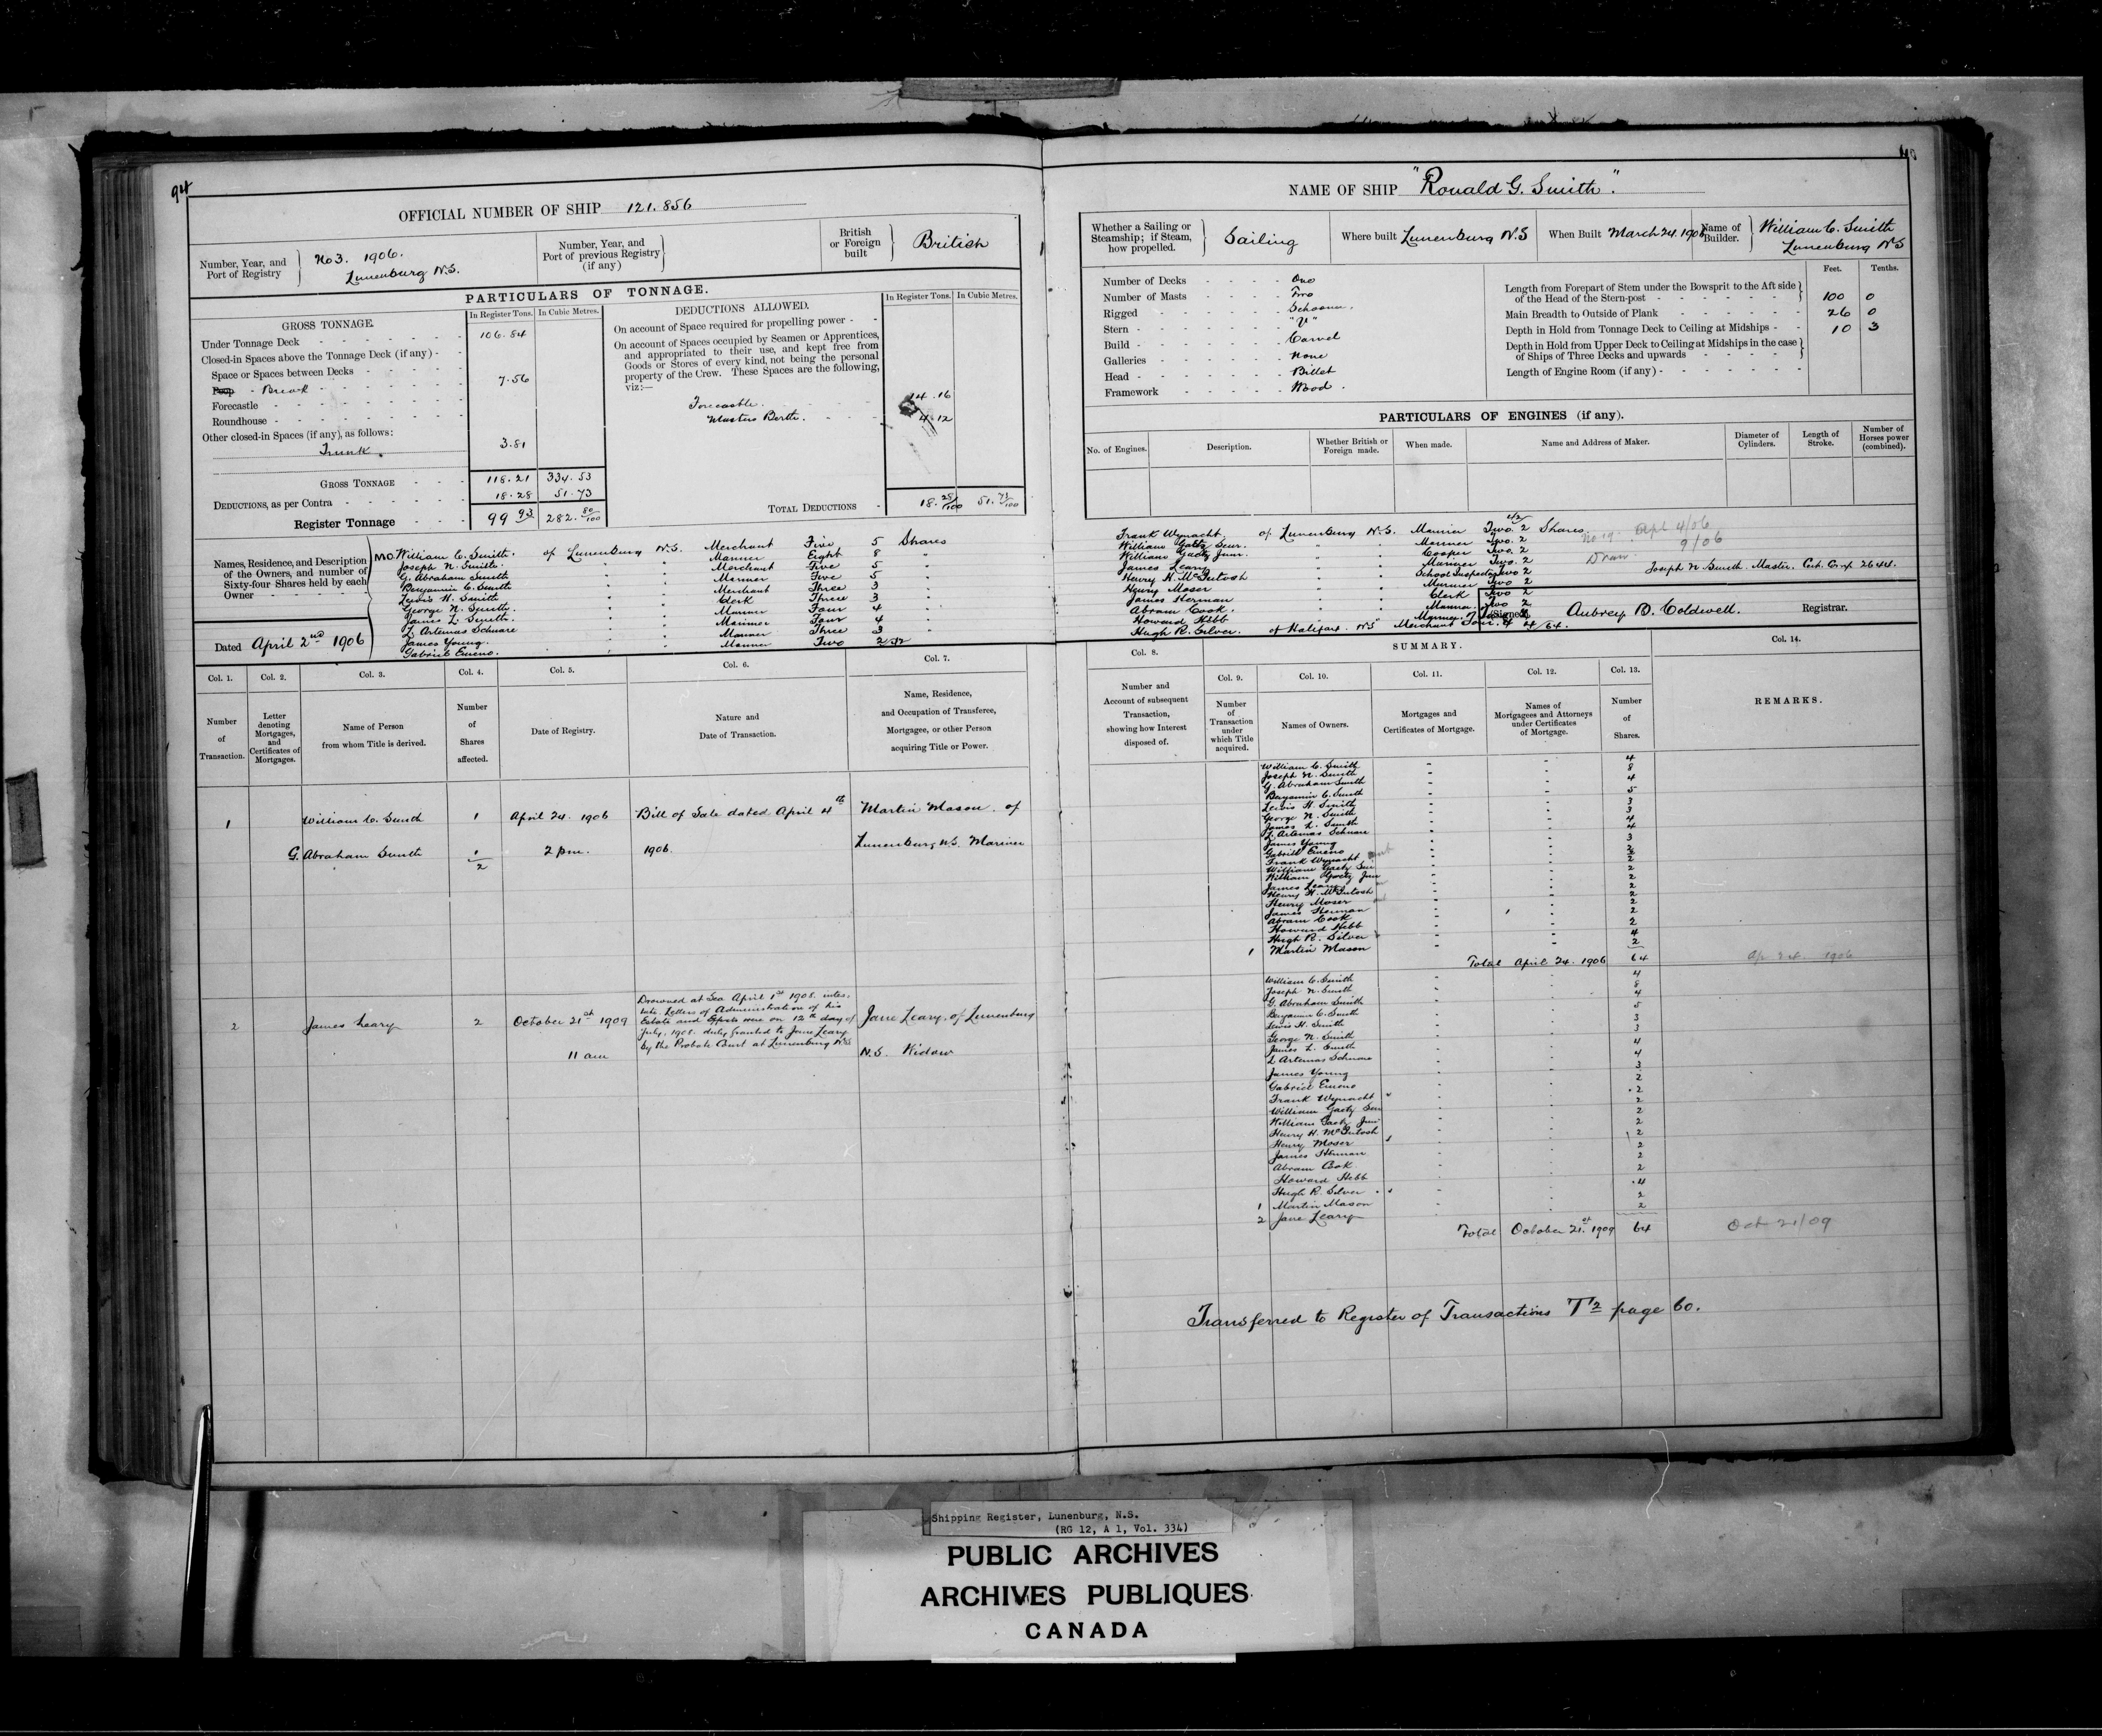 94
OFFICIAL NUMBER OF SHIP 121.856
Number, Year, and Port of Registry No 3. 1906. Lunenburg N.S.
Number, Year, and Port of previous Registry (if any)
British or Foreign built British
PARTICULARS OF TONNAGE.
GROSS TONNAGE. In Register Tons. In Cubic Metres.
Under Tonnage Deck 106.84
Closed-in Spaces above the Tonnage Deck (if any) -
Space or Spaces between Decks
Poop Break 7.56
Forecastle
Roundhouse
Other closed-in Spaces (if any), as follows:
Trunk 3.81
GROSS TONNAGE 118.21 334.53
DEDUCTIONS, as per Contra 18.28 51.73
Register Tonnage 99 93 282. 80/100
DEDUCTIONS ALLOWED. In Register Tons. In Cubic Metres.
On account of Space required for propelling power -
On account of Spaces occupied by Seamen or Apprentices,
and appropriated to their use, and kept free from
Goods or Stores of every kind, not being the personal
property of the Crew. These Spaces are the following,
viz:—
Forecastle. 14.16
Masters Berth. 4.12
TOTAL DEDUCTIONS - 18. 28/100 51. 73/100
Names, Residence, and Description
of the Owners, and number of
Sixty-four Shares held by each
Owner
Dated April 2nd 1906
M.O. William C. Smith. of Lunenburg N.S. Merchant Five 5 Shares
Joseph N. Smith. " " Mariner Eight 8 "
G. Abraham Smith " " Merchant Five 5 "
Benjamin C. Smith " " Mariner Five 5 "
Lewis H. Smith " " Merchant Three 3 "
George N. Smith. " " Clerk Three 3 "
James L. Smith. " " Mariner Four 4 "
L. Artemas Schnare " " Mariner Four 4 "
James Young. " " Mariner Three 3 "
Gabriel Emeno. " " Mariner Two 2
Col. 1. Col. 2. Col. 3. Col. 4. Col. 5. Col. 6. Col. 7.
Number of Transaction.
Letter denoting Mortgages, and Certificates of Mortgages.
Name of Person from whom Title is derived.
Number of Shares affected.
Date of Registry.
Nature and Date of Transaction.
Name, Residence, and Occupation of Transferee, Mortgagee, or other Person acquiring Title or Power.
1 William C. Smith 1 April 24. 1906 Bill of Sale dated April 4th Martin Mason. of
G. Abraham Smith 1 2 pm. 1906. Lunenburg N.S. Mariner
2
2 James Leary 2 October 21st 1909 Drowned at Sea April 1st 1908. intes-
tate. Letters of Administration of his
Estate and Effects were on 12th day of Jane Leary, of Lunenburg
July, 1908. duly granted to Jane Leary
11 am by the Probate Court at Lunenburg N.S. N.S. Widow
NAME OF SHIP "Ronald G. Smith".
Whether a Sailing or Steamship; if Steam, how propelled. Sailing
Where built Lunenburg N.S
When Built March 24. 1906
Name of Builder. William C. Smith Lunenburg N.S
Number of Decks One
Number of Masts Two
Rigged Schooner.
Stern - "V"
Build - Carvel
Galleries None
Head - Billet
Framework Wood.
Feet. Tenths.
Length from Forepart of Stem under the Bowsprit to the Aft side
of the Head of the Stern-post 100 0
Main Breadth to Outside of Plank 26 0
Depth in Hold from Tonnage Deck to Ceiling at Midships - 10 3
Depth in Hold from Upper Deck to Ceiling at Midships in the case
of Ships of Three Decks and upwards
Length of Engine Room (if any) -
PARTICULARS OF ENGINES (if any).
No. of Engines.
Description.
Whether British or Foreign made.
When made.
Name and Address of Maker.
Diameter of Cylinders.
Length of Stroke.
Number of Horses power (combined).
Frank Wynacht. of Lunenburg N.S. Mariner Two. 2 Shares
William Gaetz Senr. " " Mariner Two. 2
William Gaetz Junr. " " Cooper Two. 2
James Leary " " Mariner Two. 2
Henry H. McIntosh " " School Inspector Two 2
Henry Moser " " Mariner Two 2
James Herman " " Clerk Two 2
Abram Cook. " " Mariner Two 2
Howard Hebb " " Mariner
Hugh R. Silver. of Halifax. N.S Merchant Four 4 4/64.
Apl 4/06
9/06
Joseph N Smith. Master.
(Signed) Aubrey B. Coldwell. Registrar.
Col. 8. SUMMARY. Col. 14.
Col. 9. Col. 10. Col. 11. Col. 12. Col. 13.
Number and Account of subsequent Transaction, showing how Interest disposed of.
Number of Transaction under which Title acquired.
Names of Owners.
Mortgages and Certificates of Mortgage.
Names of Mortgagees and Attorneys under Certificates of Mortgage.
Number of Shares.
REMARKS.
William C. Smith 4
Joseph N. Smith 8
G. Abraham Smith 4
Benjamin C. Smith 5
Lewis H. Smith 3
George N. Smith 3
James L. Smith 4
L. Artemas Schnare 4
James Young 3
Gabriel Emeno 2
Frank Wynacht 2
William Gaetz Sen 2
William Gaetz Jun 2
James Leary 2
Henry H. McIntosh 2
Henry Moser 2
James Herman 2
Abram Cook 2
Howard Hebb 2
Hugh R. Silver 4
1 Martin Mason 2
Total April 24. 1906 64 Ap 24. 1906
William C. Smith 4
Joseph N. Smith 8
G. Abraham Smith 4
Benjamin C. Smith 5
Lewis H. Smith 3
George N. Smith 3
James L. Smith 4
L Artemas Schnare 4
James Young 3
Gabriel Emeno 2
Frank Wynacht 2
William Gaetz Sen 2
William Gaetz Jun 2
Henry H. McIntosh 2
Henry Moser 2
James Herman 2
Abram Cook 2
Howard Hebb 2
Hugh R. Silver 4
1 Martin Mason 2
2 Jane Leary 2
Total October 21st 1909 64 Oct 21/09
Transferred to Register of Transactions T2 page 60.
Shipping Register, Lunenburg, N.S.
(RG 12, A 1, Vol. 334)
PUBLIC ARCHIVES
ARCHIVES PUBLIQUES
CANADA